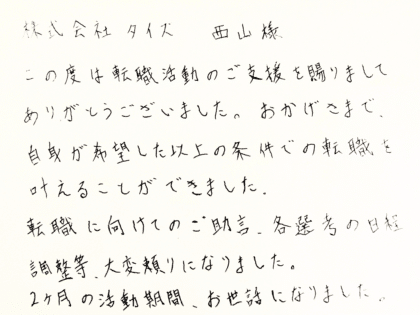 株式会社タイズ　西山様
この度は転職活動のご支援を賜りまして
ありがとうございました。おかげさまで、
自身が希望した以上の条件での転職を
叶えることができました。
転職に向けてのご助言、各選考の日程
調整等、大変頼りになりました。
2ヶ月の活動期間、お世話になりました。